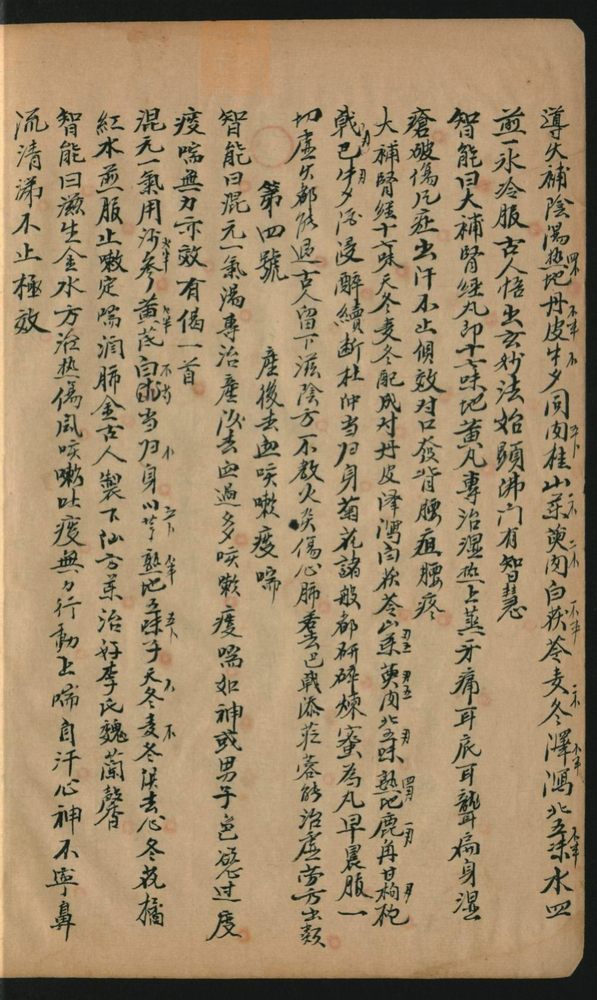 導火補陰湯熟地丹皮牛夕同肉桂山茱萸肉白茯苓麦冬澤瀉北五味水四
煎一永冷服古人悟出玄妙法始顕佛门有智慧
智能曰大補腎经丸即十六味地黄丸專治湿热上蒸牙痛耳底耳聾徧身湿
瘡破傷凡疰出汗不止倶效对口發背腰疽腰疼
大補腎経十六味天冬麦冬配成对丹皮泽瀉白茯苓山茱萸肉北五味熟地鹿角甘枸杞
戟巴牛夕酒浸醉續断杜仲当归身菊花諸般都研碎煉蜜為丸早晨服一
切虚火都能退古人留下滋陰方不教火炎傷心肺去巴戟添苁蓉能治虚劳方出类
第四號　產後去血咳嗽痰喘
智能曰混元一氣湯專治產後去血過多咳嗽痰喘如神或男子色慾过度
痰喘無力亦效有偈一首
混元一氣用沙参黄芪白朮当归身川芎熟地五味子天冬麦冬俱去心冬花橘
紅水煎服止嗽定喘润肺金古人製下仙方茱治好李氏魏蘭馨
智能曰滋生金水方治热傷風咳嗽吐痰無力行動上喘自汗心神不寧鼻
流清涕不止極效